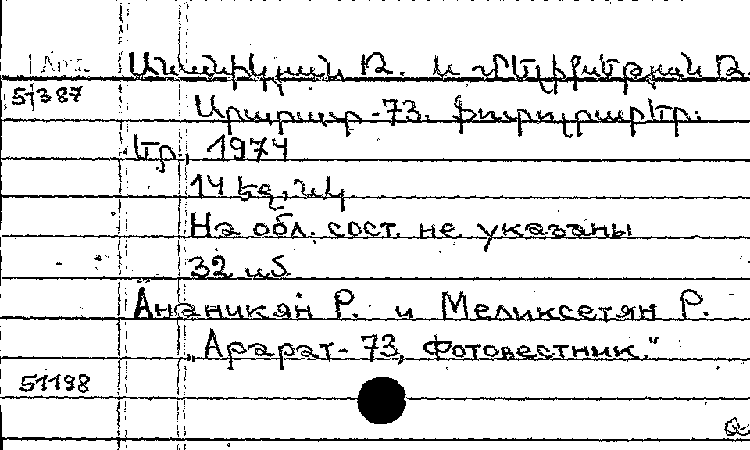 Арм. Անանիկյան Ռ. և Մելիքսեթյան Ռ.
51387 Արարատ-73. ֆոտոլրաբեր.
Եր., 1974
14 եզ., նկ
На обл. сост. не указаны
32 սմ
Ананикян Р. и Меликсетян Р.
„Арарат-73, Фотовестник."
51198